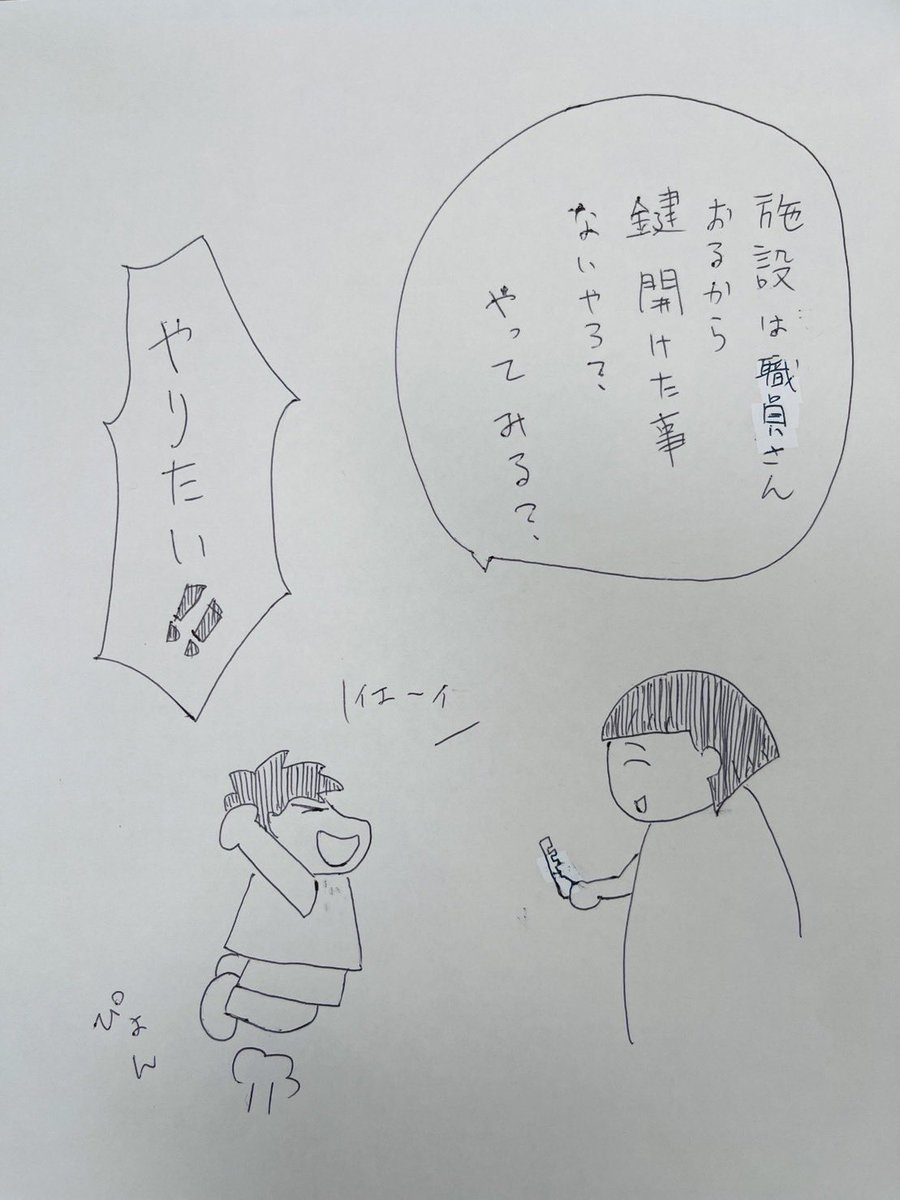 施設は職員さん
おるから
鍵開けた事
ないやろ?
やってみる?
やりたい!!
はーイ
ぴょん